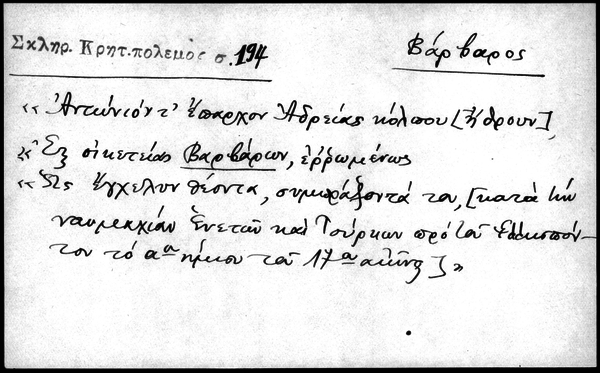 Σκληρ. Κρητ. πολεμος σ. 194
Βάρβαρος
«Ἀντώνιόν τ' ἔπαρχον Ἀδρείας κόλπου [ἤθρουν],
«Ἐξ οἰκετείας Βαρβάρων, ἐρρωμένως
«Εἰς ἔγχελυν θέοντα, συμπράξοντά τοι, [κατὰ τὴν
ναυμαχίαν Ἑνετῶν καὶ Τούρκων πρὸ τοῦ Ἑλλησπόν-
του τὸ αον ἥμισυ τοῦ 17ου αἰῶνος]»